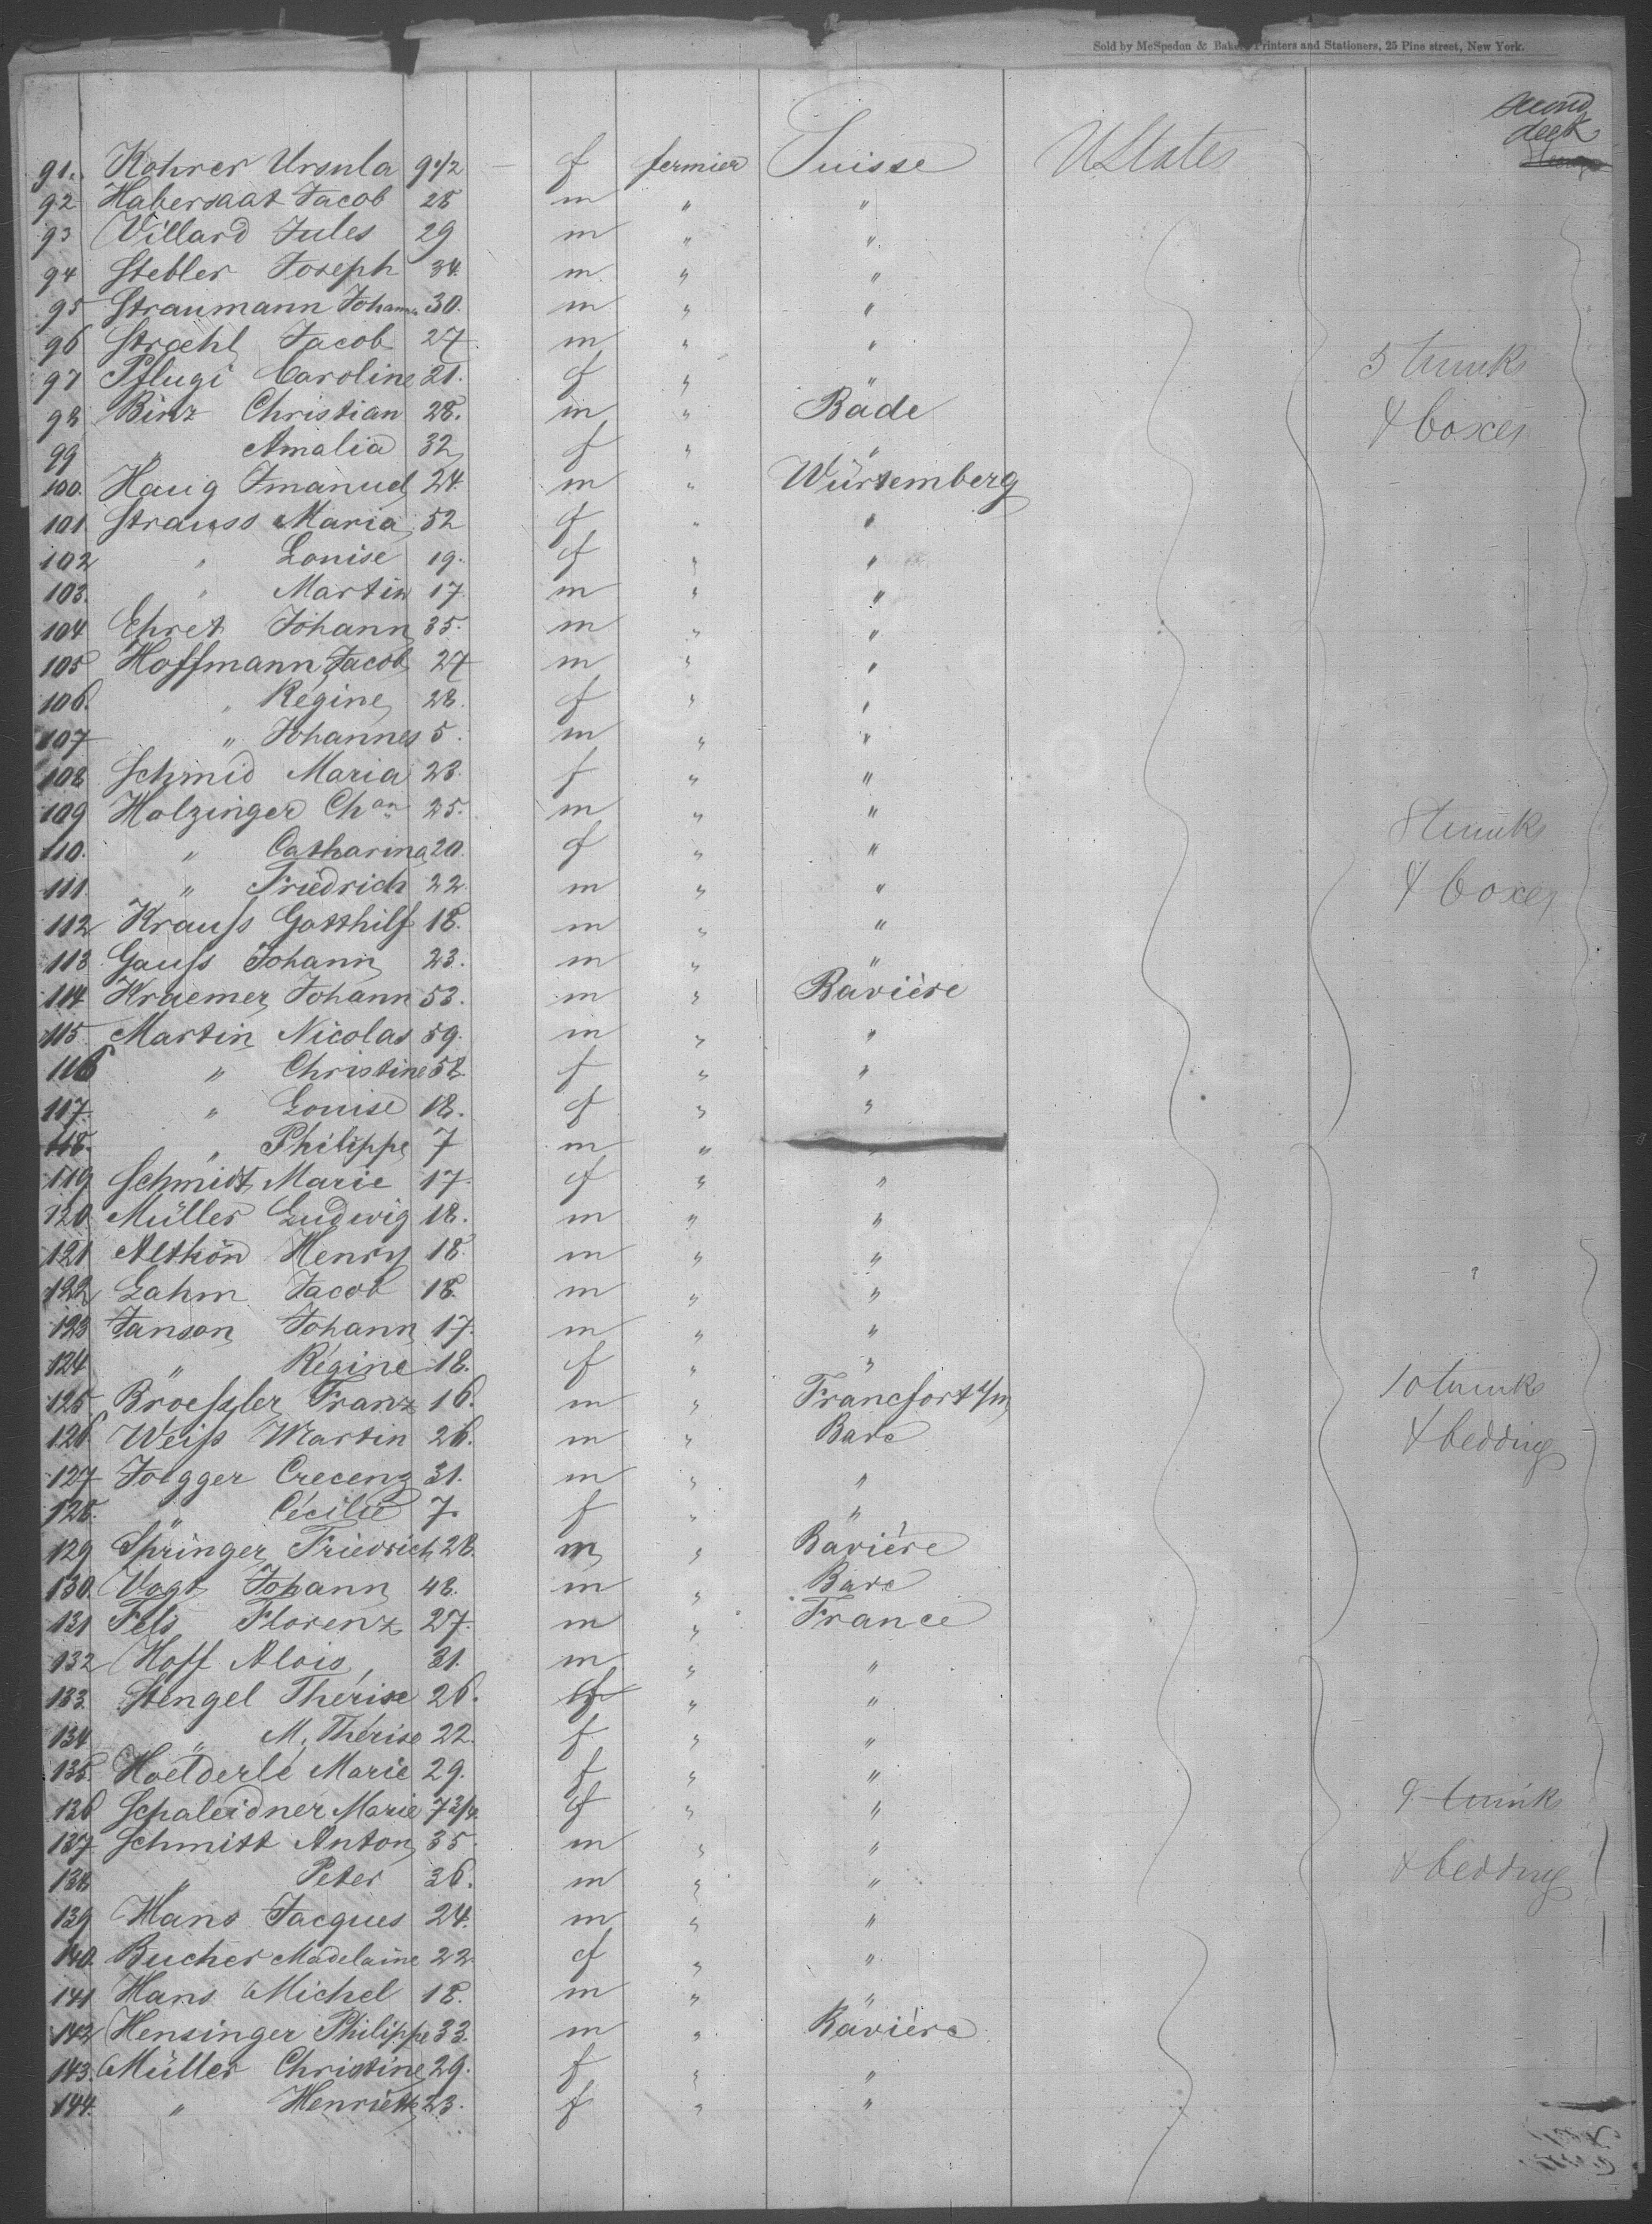 Sold by McSpedon & Baker, Printers and Stationers, 25 Pine street, New York.
second
deck
91. Rohrer Ursula 9 1/2 — f fermier Suisse UStates
92 Habersaat Jacob 28 m " "
93 Villard Jules 29 m " "
94 Stebler Joseph 34. m " "
95 Straumann Johann 30. m " "
96 Straehl Jacob 27. m " "
97 Pflugi Caroline 21. f " " 5 trunks
98 Binz Christian 28. m " Bade
99 " Amalia 32 f " " & boxes
100. Haug Imanuel 24. m " Würtemberg
101 Strauss Maria 52 f " "
102 " Louise 19. f " "
103. " Martin 17. m " "
104 Ehret Johann 35. m " "
105 Hoffmann Jacob 27 m " "
106. " Regine 28. f " "
107 " Johannes 5. m " "
108 Schmid Maria 23. f " "
109 Holzinger Chan 25. m " " 8 trunks
110. " Catharina 20. f " "
111. " Friedrich 22. m " " & boxes
112 Krauss Gotthilf 18. m " "
113 Gauss Johann 23. m " "
114 Kraemer Johann 53. m " Bavière
115 Martin Nicolas 59. m " "
116 " Christine 52. f " "
117. " Louise 18. f " "
118. " Philippe 7 m "
119 Schmidt Marie 17. f " "
120. Müller Ludwig 18. m " "
121 Althön Henry 18. m " "
122 Lahm Jacob 18. m " "
123 Janson Johann 17. m " "
124 " Régine 18. f " "
125 Broessler Franz 16. m " Francfort s/m 10 trunks
126 Weiss Martin 26. m " Bade & bedding
127 Joegger Crecenz 31. m " "
128. " Cécilie 7. f " "
129 Springer Friedrich 28. m " Bavière
130. Vogt Johann 48. m " Bade
131 Fels Florenz 27. m " France
132 Hoff Alois 31. m " "
133. Stengel Thérise 26. f " "
134 " M. Thérise 22. f " "
135. Hoelderlé Marie 29. f " "
136 Schaleidner Marie 7 f " " 9 trunks
137 Schmitt Anton 35. m " "
138 " Peter 36. m " " & bedding
139 Hans Jacques 24. m " "
140. Bucher Madelaine 22. f " "
141 Hans Michel 18. m " "
142 Hensinger Philippe 33. m " Bavière
143. Müller Christine 29. f " "
144. " Henriette 23. f " "